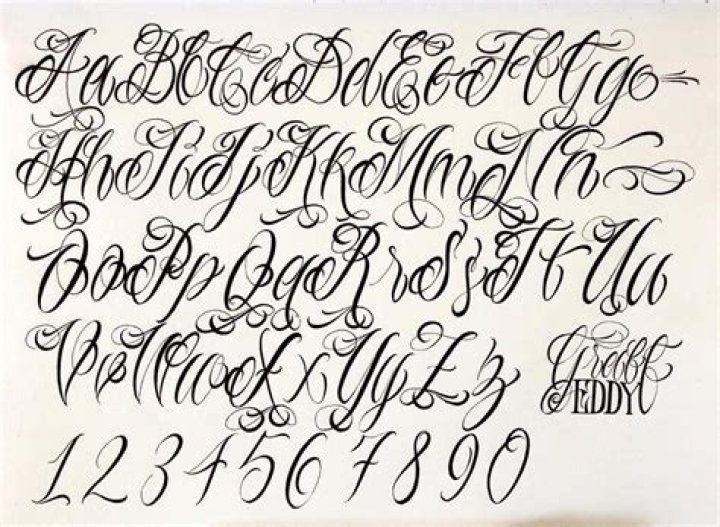 Aa Bb Cc Dd Ee Ff Gg
Hh Ii Jj Kk Mm Nn
Oo Pp Qq Rr Ss Tt Uu
Vv Ww Xx Yy Zz
Greiff
EDDY
1 2 3 4 5 6 7 8 9 0